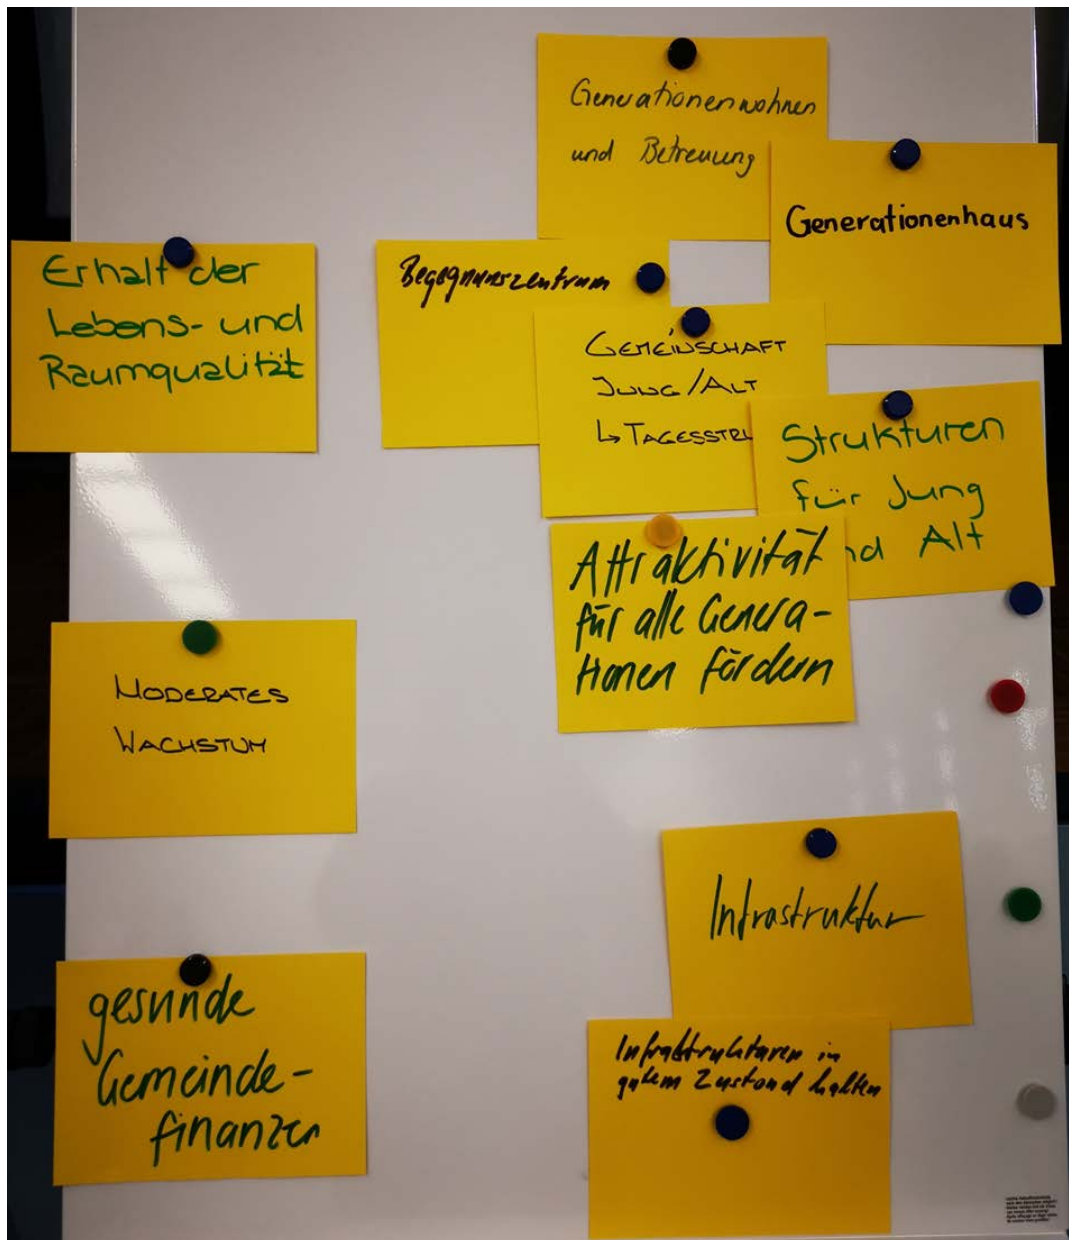 Generationenwohnen
und Betreuung
Generationenhaus
Erhalt der
Lebens- und
Raumqualität
Begegnunszentrum
GEMEINSCHAFT
JUNG/ALT
↳ TAGESSTRU
Strukturen
für Jung
nd Alt
Attraktivität
für alle Genera-
tionen fördern
MODERATES
WACHSTUM
Infrastruktur
gesunde
Gemeinde-
finanzen
Infrastrukturen in
gutem Zustand halten